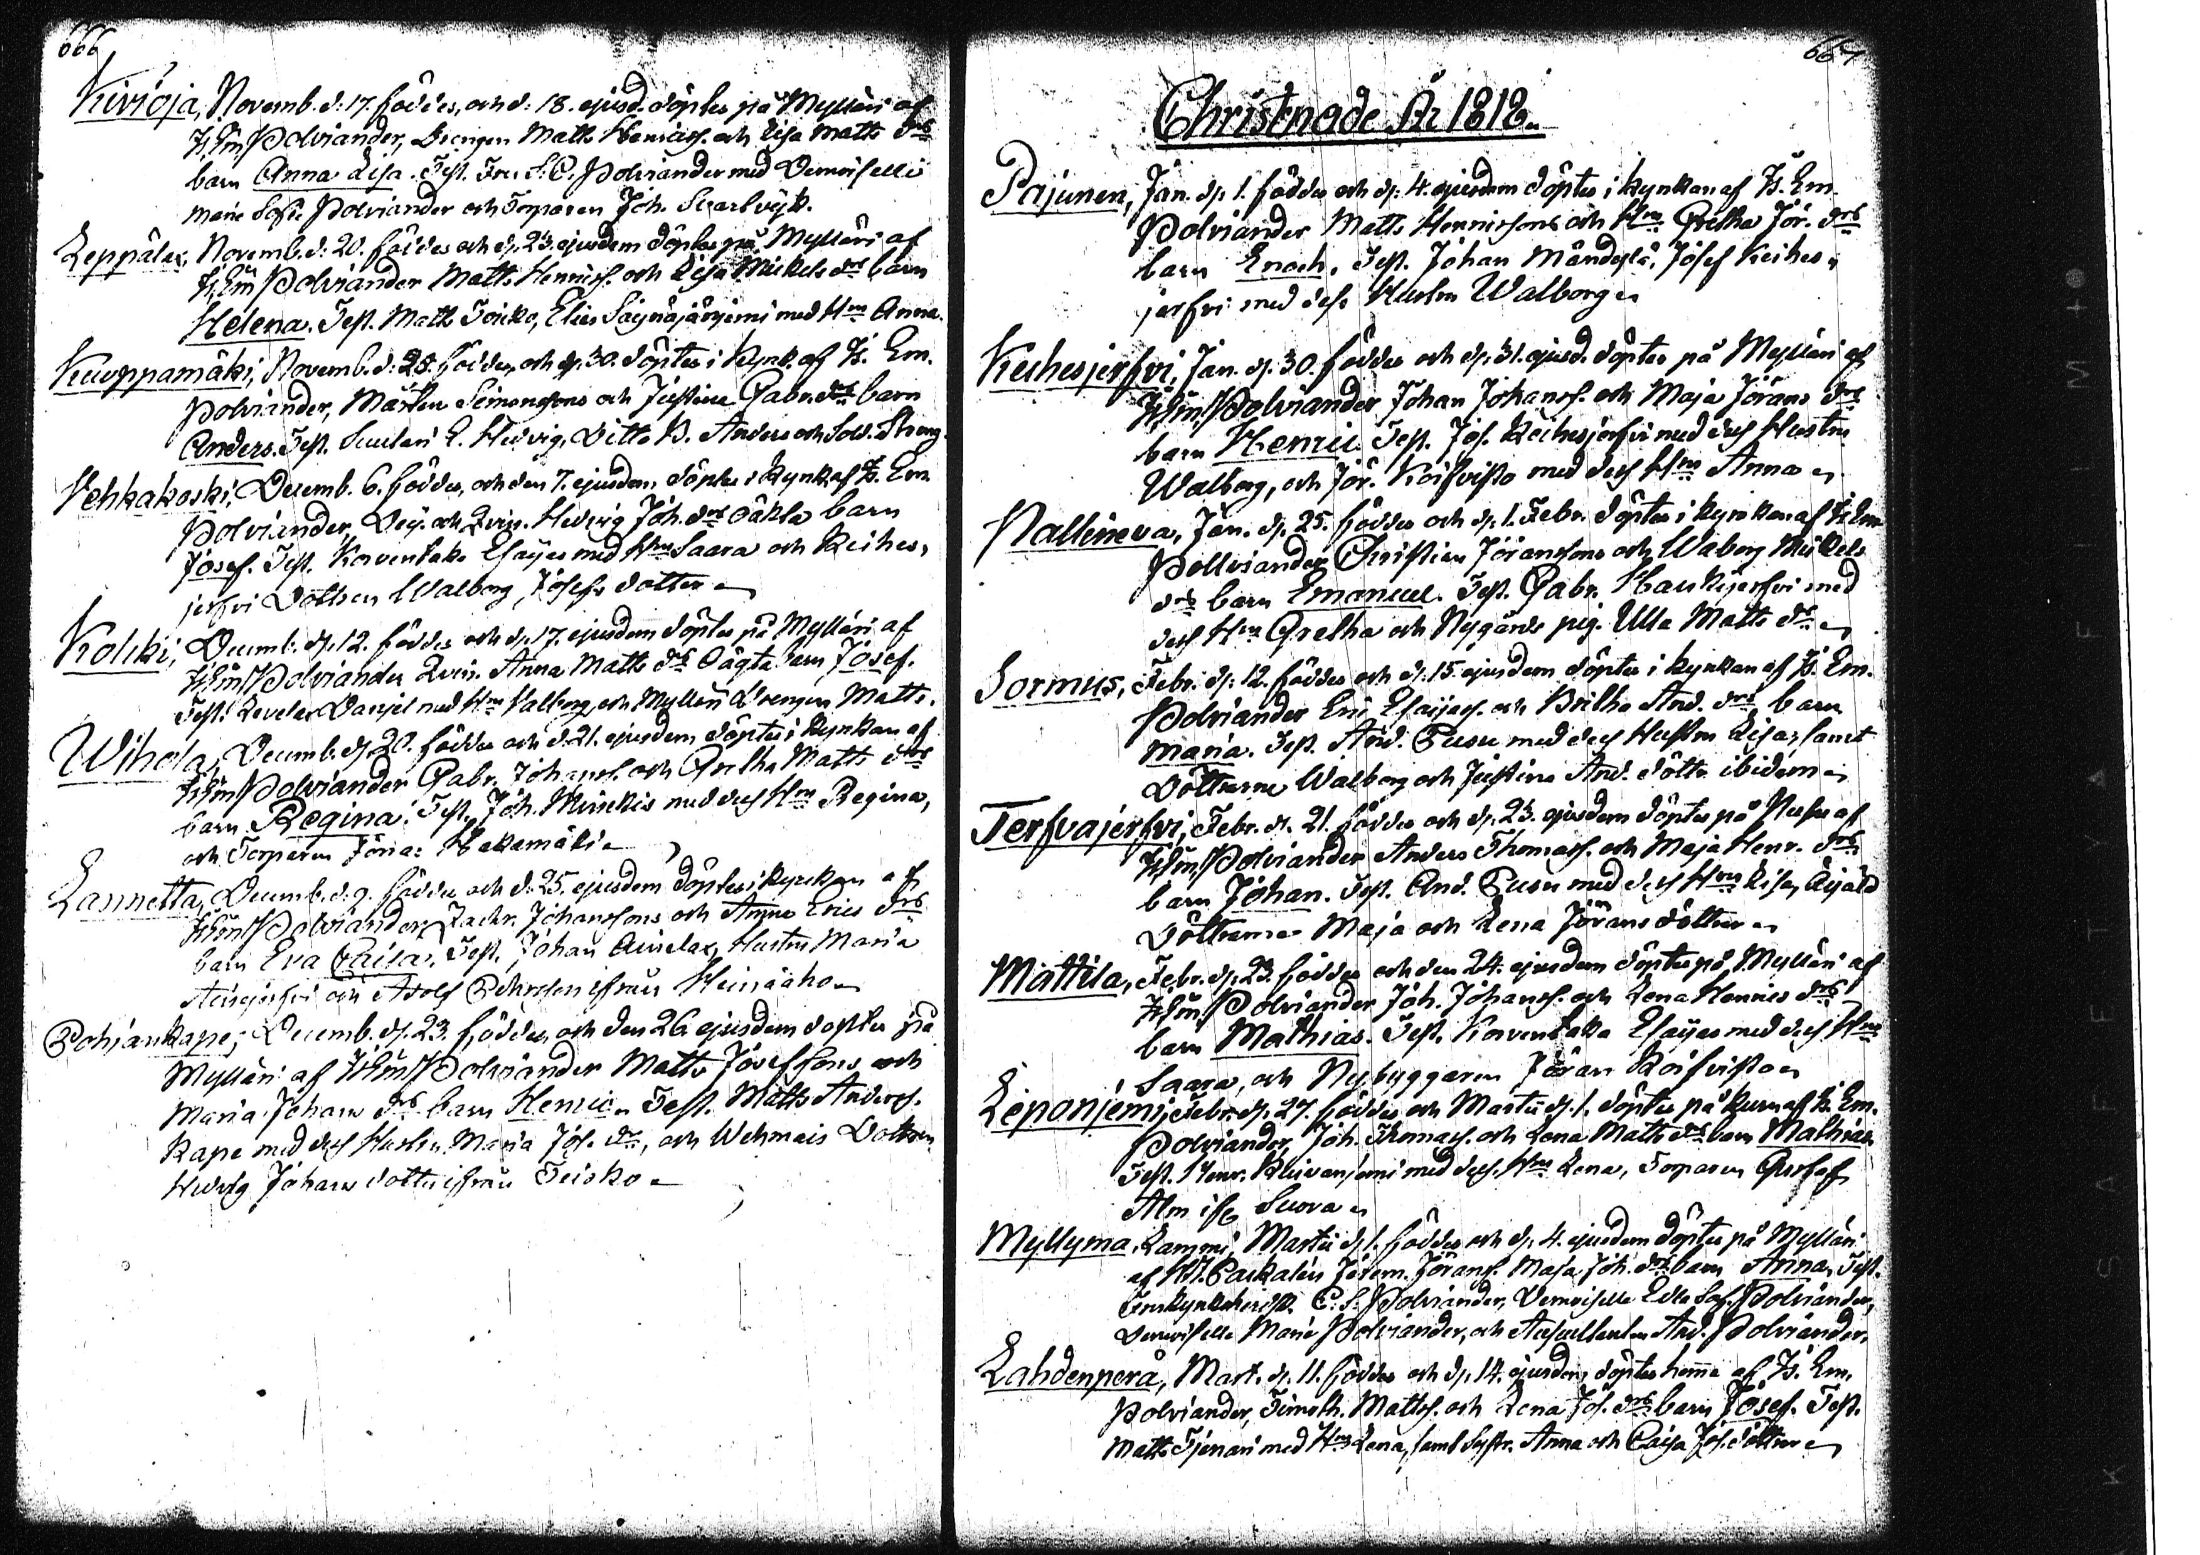 666
Kivioja, Novemb. d: 17. föddes, och d: 18. ejusd. döptes på Mylläri af
Polviander, Drengen Matts Henricss. och Lisa Matts drs
barn Anna Lisa. Test. Fru S. C. Polviander med Demoiselle
Marie Sofie Polviander och Torparen Joh.
Leppälax, Novemb. d: 20. föddes och d: 23. ejusdem döptes på Mylläri af
Polviander Matts Henricss. och Lisa Mickels drs barn
Helena. Test. Matts Soicko, Elias med Hru Anna.
Kuoppamäki, Novemb. d: 28. föddes, och d: 30. döptes i Kyrk. af Em.
Polviander, Mårten Simonssons och Justina Gabr. drs barn
Anders. Test. E. Hedvig, Ditto B. Anders och Sold.
Vehkakoski, Decemb. 6. föddes, och den 7. ejusdem döptes i Kyrk. af Em.
Polviander, Hedvig Joh. drs oäkta barn
Josef. Test. Korventaka Esaijas med Hru Saara och Keihes-
jerfvi Dottren Walborg, Josefs dotter
Kolkki, Decemb. d: 12. föddes och d: 17. ejusdem döptes på Mylläri af
Polviander Anna Matts drs oägta barn Josef.
Test. Danjel med Hru Valborg, och Mylläri Drengen Matts.
Wihola, Decemb. d: 20. föddes och d: 21. ejusdem döptes i Kyrkan af
Polviander Gabr. Johanss. och Gretha Matts drs
barn Regina. Test. Joh. med dess Hru Regina,
och Torparen Jöran Hakamäki
Lannetta, Decemb. d: 9. föddes och d: 25. ejusdem döptes i kyrkan af
Polviander, Zachr. Johanssons och Anna Erics drs
barn Eva Caisa. Test. Johan Hustru Maria
och Adolf ifrån Heinäaho
Pohjankape, Decemb. d: 23. föddes, och den 26 ejusdem döptes på
Mylläri af Polviander Matts Josefssons och
Maria Johans drs barn Henric. Test. Matts Anderss.
Kape med dess Hustru Maria Jos. dr, och Wehmais Dottren
Hedvig Johans dotter ifrån Teisko
667
Christnade År 1818.
Pajunen, Jan. d: 1. föddes och d: 4. ejusdem döptes i kyrkan af Em.
Polviander Matts Henricssons och Hru Gretha Jör. drs
barn Enoch. Test. Johan Mändylä, Josef Keihes-
jerfvi med dess Hustru Walborg
Keihesjerfvi, Jan. d: 30. föddes och d: 31. ejusd. döptes på Mylläri af
Polviander Johan Johanss. och Maja Jörans drs
barn Henric. Test. Jos. Keihesjerfvi med dess Hustru
Walborg, och Jör. Koifvisto med dess Hru Anna
Nallineva, Jan. d: 25. föddes och d: 1. Febr. döptes i kyrkan af Em
Pollviander Christian Jöranssons och Waborg Mickels
drs barn Emanuel. Test. Gabr. Haukijerfvi med
dess Hru Gretha och Nygårds pig. Ulla Matts dr
Sormus, Febr. d: 12. föddes och d: 15. ejusdem döptes i kyrkan af Em.
Polviander Eric Esaijass. och Britha And. drs barn
Maria. Test. And. Pusu med dess Hustru Lisa, samt
Döttrarne Walborg och Justina And. döttr. ibidem
Terfvajerfvi, Febr. d. 21. föddes och d: 23. ejusdem döptes på Pusu af
Polviander Anders Thomass. och Maja Henr. drs
barn Johan. Test. And. Pusu med dess Hru Lisa,
Döttrarna Maja och Lena Jörans döttrar
Mattila, Febr. d: 23. föddes och den 24. ejusdem döptes på Mylläri af
Polviander Joh. Johanss. och Lena Henrics drs
barn Mathias. Test. Korventaka Esaijas med dess Hru
Saara, och Nybyggaren Jöran Koifvisto
Leponjemi, Febr. d: 27. föddes och Martii d: 1. döptes på Em.
Polviander, Joh. Thomass. och Lena Matts drs barn Mathias
Test. Henr. med dess Hru Lena, Torparen Gustaf
Alm
Myllyma, Lammi, Martii d: 1. föddes och d: 4. ejusdem döptes på Mylläri
af Jerem. Jöranss. Maja Joh. drs barn Anna, Test.
C: S: Polviander, Demoiselle Edla Sof. Polviander,
Demoiselle Marie Polviander, och And. Polviander.
Lahdenperä, Mart. d: 11. föddes och d: 14. ejusdem döptes hema af Em.
Polviander, Timoth. Mattss. och Lena Jos. drs barn Josef. Test.
Matts med Hru Lena, samt Syst. Anna och Caisa Jos. döttrar